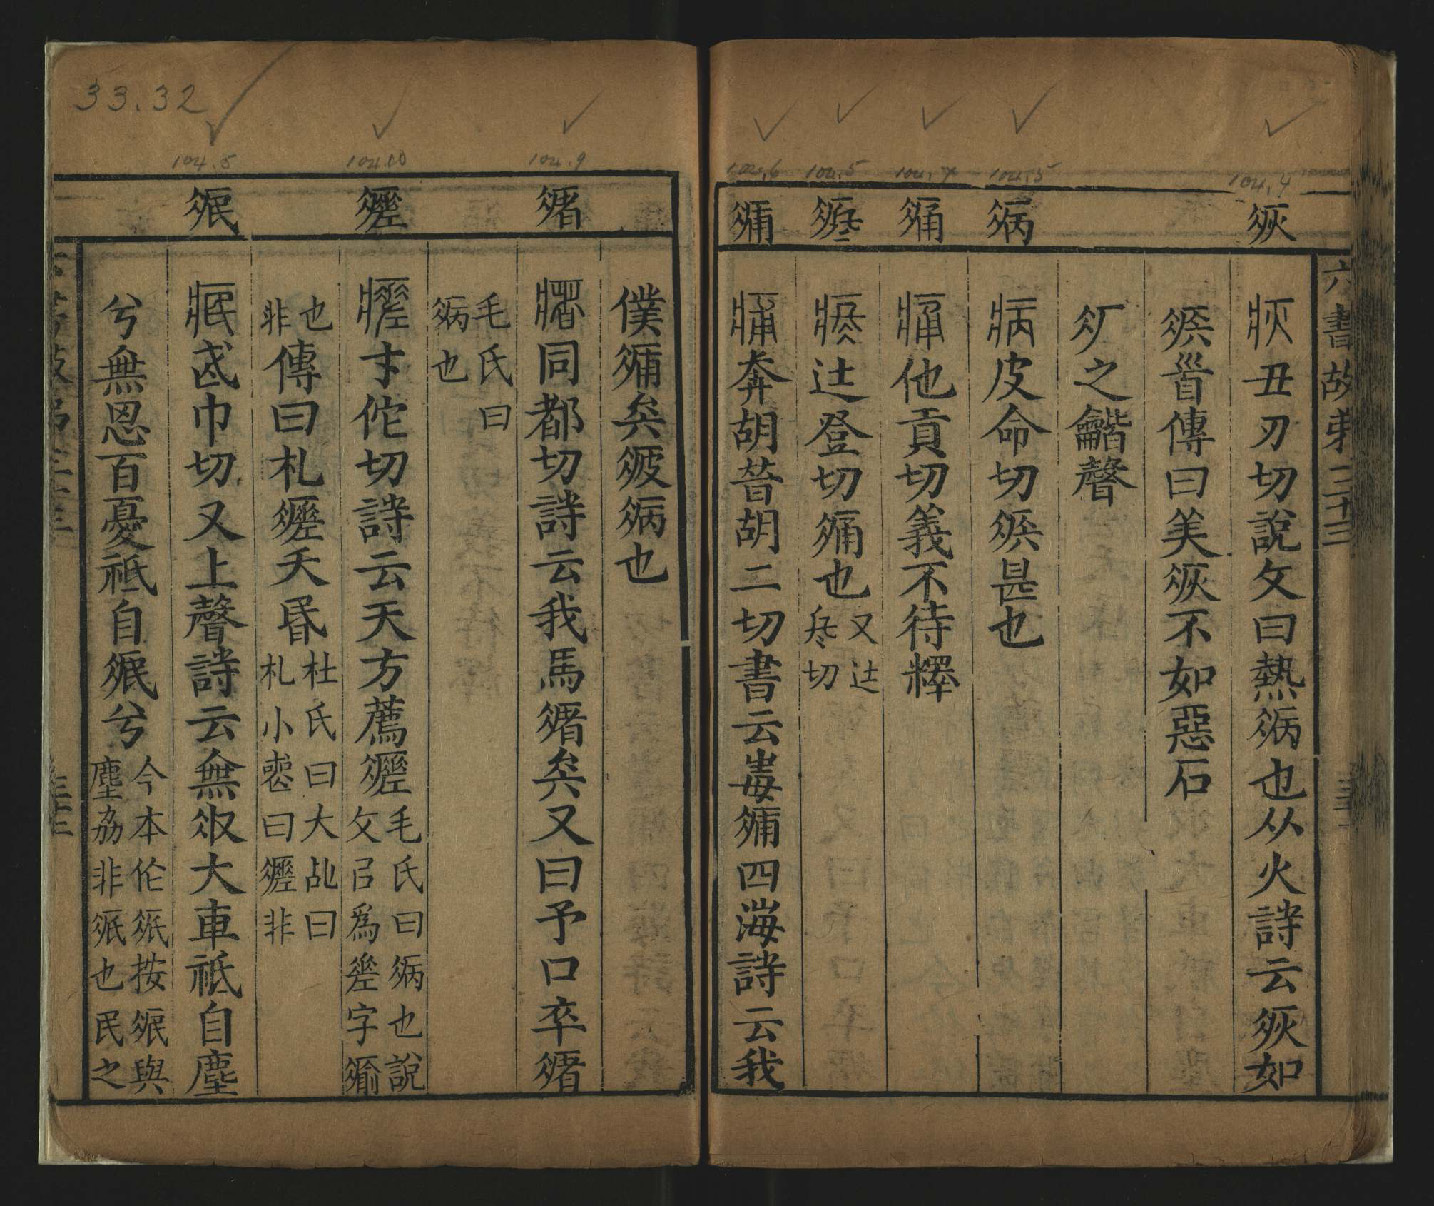 六書故弟三十三
疢丑刃切說文曰熱病也从火詩云疢如
疾首傳曰美疢不如惡石
疒之龤聲
病皮命切疾甚也
痛他貢切義不待釋
疼辻登切痛也又辻冬切
痡奔胡普胡二切書云毒痡四海詩云我
僕痡矣疲病也
瘏同都切詩云我馬瘏矣又曰予口卒瘏
毛氏曰病也
瘥才佗切詩云天方薦瘥毛氏曰病也說文㠯爲瘥字瘉
也非傳曰札瘥夭昬杜氏曰大死曰札小疫曰瘥非
疧巾切又上聲詩云無將大車祗自塵
兮無思百憂祗自疧兮今本作疧按痻與塵劦非疧也民之